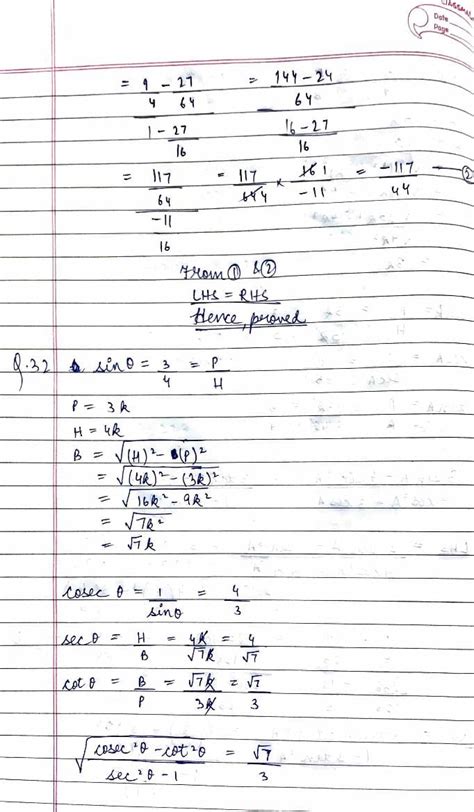 CLASSMATE
Date
Page
= 9/4 - 27/64 / 1 - 27/16 = 144-24/64 / 16-27/16
= 117/64 / -11/16 = 117/64 4 × 16 1/-11 = -117/44 — ②
From ① & ②
LHS = RHS
Hence, proved
Q.32 sin θ = 3/4 = P/H
P = 3k
H = 4k
B = √(H)² - (P)²
= √(4k)² - (3k)²
= √16k² - 9k²
= √7k²
= √7k
cosec θ = 1/sinθ = 4/3
sec θ = H/B = 4k/√7k = 4/√7
cot θ = B/P = √7k/3k = √7/3
√cosec²θ - cot²θ/sec²θ - 1 = √7/3